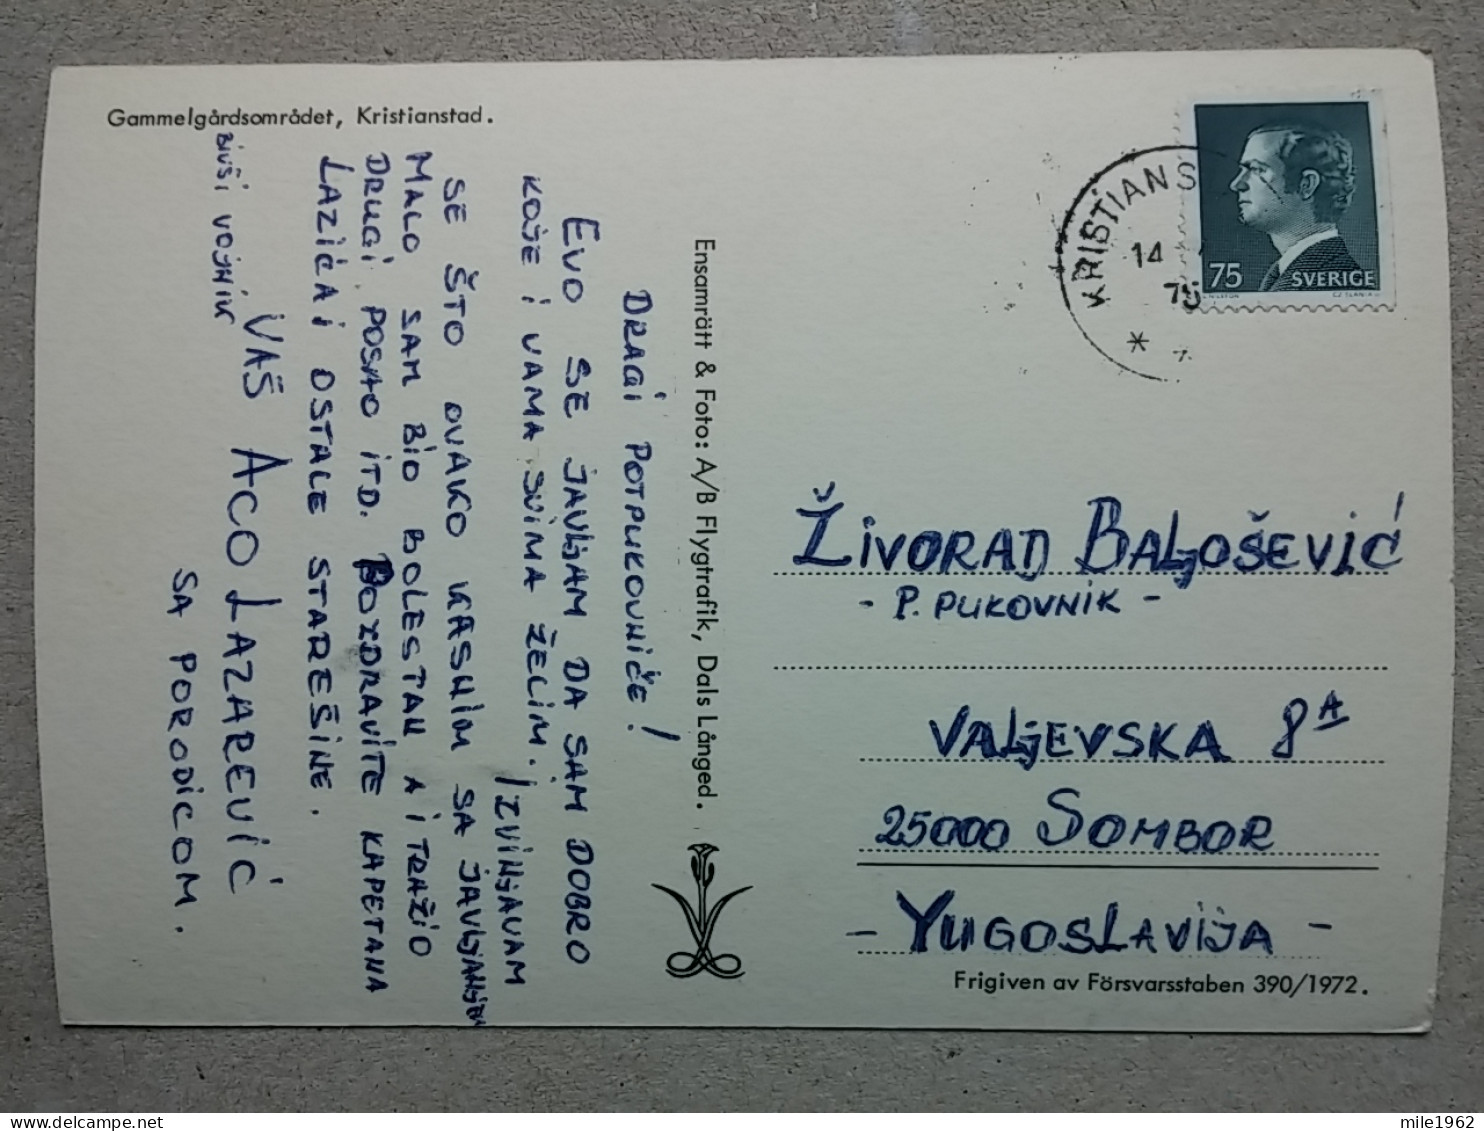 Gammelgårdsområdet, Kristianstad.
DRAGI POTPUKOVNIČE!
EVO SE JAVLJAM DA SAM DOBRO
KOJE I VAMA SVIMA ŽELIM. IZVINJAVAM
SE ŠTO OVAKO KASNIM SA JAVLJANJEM
MALO SAM BIO BOLESTAN A I TRAŽIO
DRUGI POSAO ITD. POZDRAVITE KAPETANA
LAZIĆA I OSTALE STAREŠINE.
VAŠ ACO LAZAREVIĆ
BIVŠI VOJNIK
SA PORODICOM.
Ensamrätt & Foto: A/B Flygtrafik, Dals Långed.
KRISTIANS
14
75
75 SVERIGE
ŽIVORAD BALJOŠEVIĆ
- P. PUKOVNIK -
VALJEVSKA 8A
25000 SOMBOR
- YUGOSLAVIJA -
Frigiven av Försvarsstaben 390/1972.
mile1962